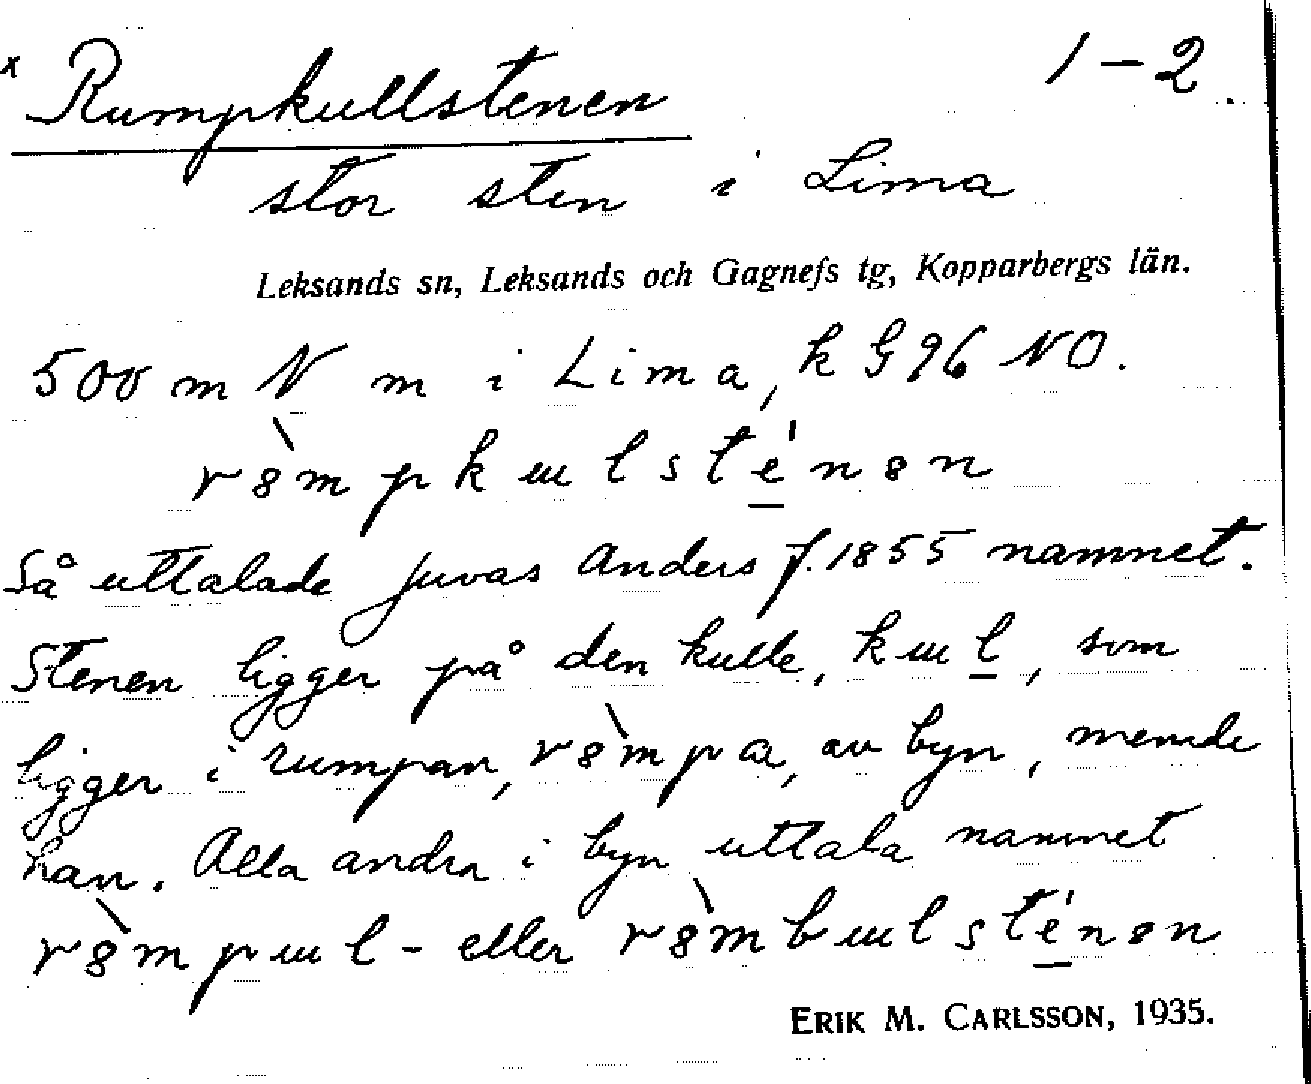 x Rumpkullstenen 1-2.
stor sten i Lima
Leksands sn, Leksands och Gagnefs tg, Kopparbergs län.
500 m N m i Lima, k G 96 NO.
rə̀mpkɯlsté̱nən
Så uttalade Juvas Anders f. 1855 namnet.
Stenen ligger på den kulle, kɯl̲, som
ligger i rumpan, rə̀mpa, av byn, menade
han. Alla andra i byn uttala namnet
rə̀mpɯl- eller rə̀mbɯlsté̱nən
ERIK M. CARLSSON, 1935.